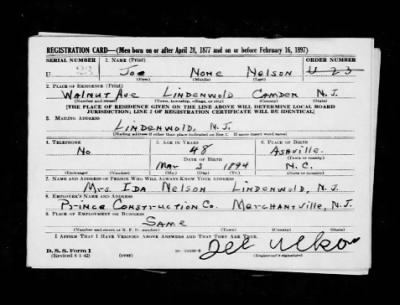 REGISTRATION CARD—(Men born on or after April 28, 1877 and on or before February 16, 1897)
SERIAL NUMBER 1. NAME (Print) ORDER NUMBER
U 23 Joe None Nelson U 23
(First) (Middle) (Last)
2. PLACE OF RESIDENCE (Print)
Walnut Ave Lindenwold Camden N.J.
(Number and street) (Town, township, village, or city) (County) (State)
[THE PLACE OF RESIDENCE GIVEN ON THE LINE ABOVE WILL DETERMINE LOCAL BOARD
JURISDICTION; LINE 2 OF REGISTRATION CERTIFICATE WILL BE IDENTICAL]
3. MAILING ADDRESS
Lindenwold, N.J.
[Mailing address if other than place indicated on line 2. If same insert word same]
4. TELEPHONE 5. AGE IN YEARS 6. PLACE OF BIRTH
No 48 Ashville.
DATE OF BIRTH (Town or county)
Mar 3 1894 N.C.
(Exchange) (Number) (Mo.) (Day) (Yr.) (State or country)
7. NAME AND ADDRESS OF PERSON WHO WILL ALWAYS KNOW YOUR ADDRESS
Mrs. Ida Nelson Lindenwold, N.J.
8. EMPLOYER'S NAME AND ADDRESS
Prince Construction Co. Merchantville, N.J.
9. PLACE OF EMPLOYMENT OR BUSINESS
Same
(Number and street or R. F. D. number) (Town) (County) (State)
I AFFIRM THAT I HAVE VERIFIED ABOVE ANSWERS AND THAT THEY ARE TRUE.
D. S. S. Form 1
(Revised 4-1-42) (over) (Registrant's signature)